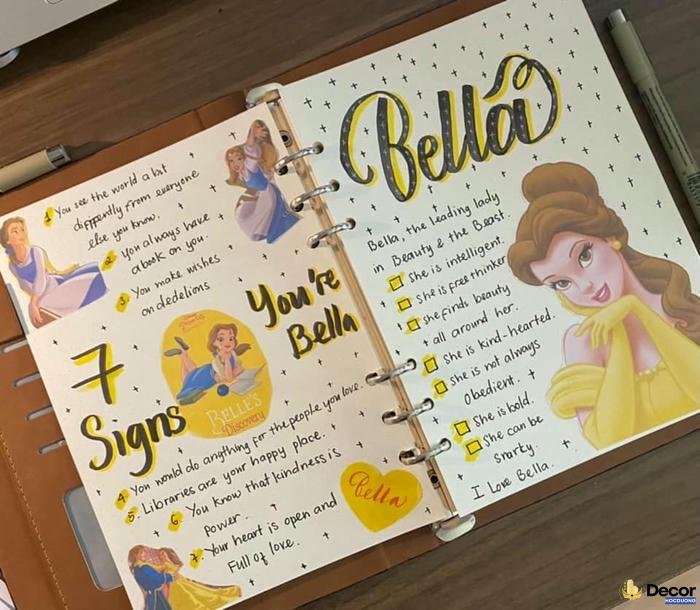 1 You see the world a bit
differently from everyone
else you know.
2 You always have
a book on you.
3 You make wishes
on dedelions
You're
Bella
7
Signs
Princess
BELLE'S
Discovery
4. You would do anything for the people you love.
5. Libraries are your happy place.
6. You know that kindness is
power.
7. Your heart is open and
Full of love.
Bella
Bella
Bella, the leading lady
in Beauty & the Beast.
She is intelligent.
She is free thinker
she finds beauty
all around her.
She is kind-hearted.
She is not always
Obedient.
She is bold.
She can be
snarky.
I Love Bella.
Decor
HOCDUONG